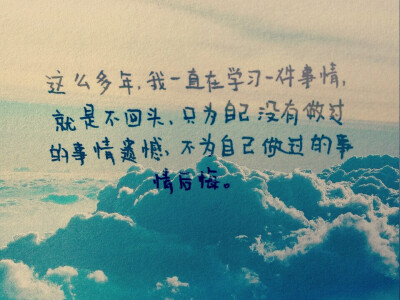 这么多年，我一直在学习一件事情，
就是不回头，只为自己没有做过
的事情遗憾，不为自己做过的事
情后悔。